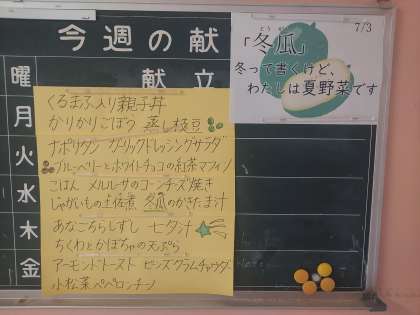 今週の献
曜
献 立
月
火
水
木
金
くるまふ入り親子丼
かりかりごぼう 蒸し枝豆
ナポリタン ガーリックドレッシングサラダ
ブルーベリーとホワイトチョコの紅茶マフィン
ごはん メルルーサのコーンチーズ焼き
じゃがいもの土佐煮 冬瓜のかきたま汁
あなごちらしずし 七夕汁
ちくわとかぼちゃの天ぷら
アーモンドトースト ビーンズクラムチャウダー
小松菜ペペロンチーノ
とう がん
「冬瓜」
7/3
冬って書くけど、
わたしは夏野菜です